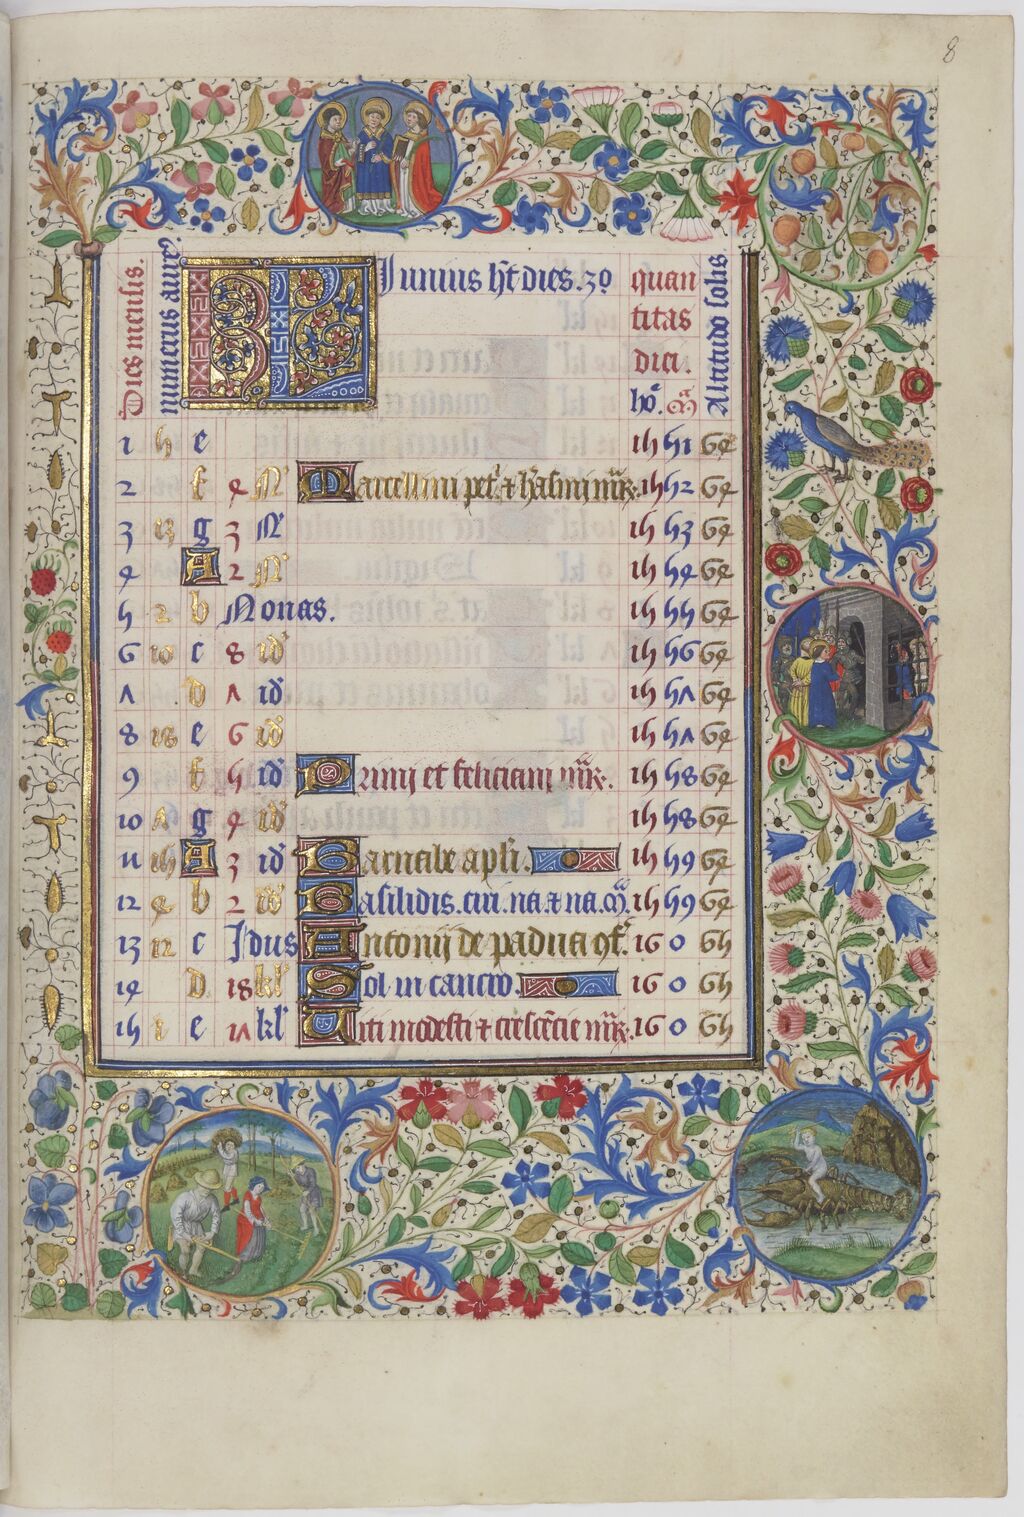 8
Dies mensis.
numerus aure9
KL Iunius ht dies. 30
quan
titas
diei.
ho. m
Altitudo solis
1 h e 15 51 64
2 f 4 N Marcellini pet & herasmi mr. 15 52 64
3 13 g 3 N 15 53 64
4 A 2 N 15 54 64
5 2 b Nonas. 15 55 64
6 10 c 8 id 15 56 64
7 d 7 id 15 57 64
8 18 e 6 id 15 57 64
9 f 5 id Primi et feliciani mr. 15 58 64
10 7 g 4 id 15 58 64
11 15 A 3 id Barnabe apli. 15 59 64
12 4 b 2 id Basilidis. ciri. na & na. m. 15 59 64
13 12 c Idus Antonii de padua cf. 16 0 65
14 d 18 kl Sol in cancro. 16 0 65
15 1 e 17 kl Uiti modesti & crescecie mr. 16 0 65